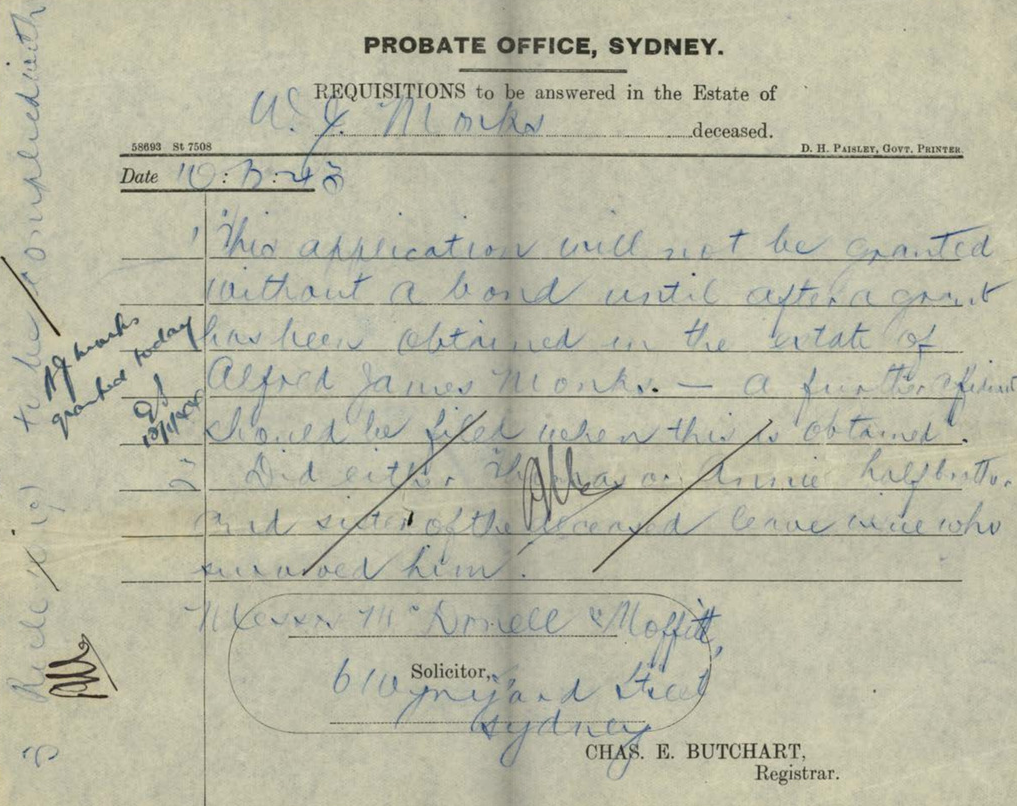 PROBATE OFFICE, SYDNEY.
REQUISITIONS to be answered in the Estate of
W. J. Monks deceased.
58693 St 7508
D. H. PAISLEY, GOVT. PRINTER.
Date 10
1 This application will not be granted
without a bond until after a grant
has been obtained in the estate of
Alfred James Monks. — A further affidavit
should be filed when this is obtained.
2 Did either Thomas or Annie half brother
and sister of the deceased leave issue who
survived him.
Messrs McDonell & Moffitt,
Solicitor,
6 Wynyard Street
Sydney
CHAS. E. BUTCHART,
Registrar.
A J Monks
granted today
3 Rule to be complied with